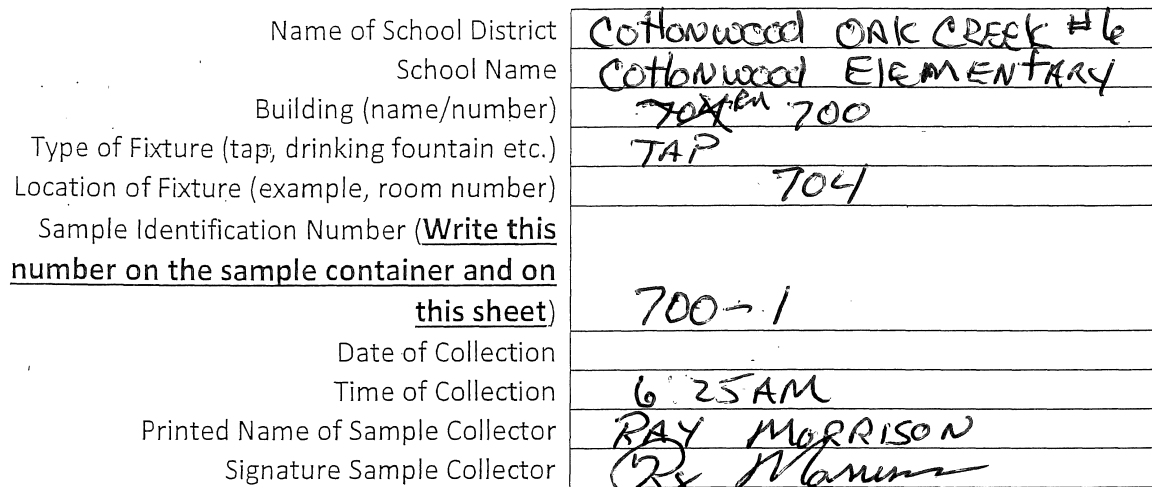 Name of School District COttONwood OAK CREEK #6
School Name COttONwood ElEMENtARY
Building (name/number) 704 RM 700
Type of Fixture (tap, drinking fountain etc.) TAP
Location of Fixture (example, room number) 704
Sample Identification Number (Write this
number on the sample container and on
this sheet) 700-1
Date of Collection
Time of Collection 6:25AM
Printed Name of Sample Collector RAY MORRISON
Signature Sample Collector